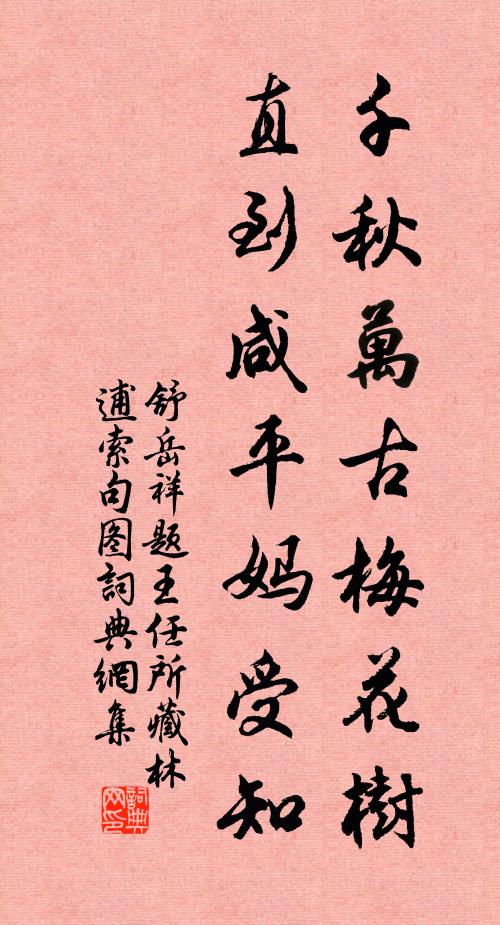 千秋萬古梅花樹
直到咸平妈受知
舒岳祥题王任所藏林
逋索句图詞典網集
詞典
网印